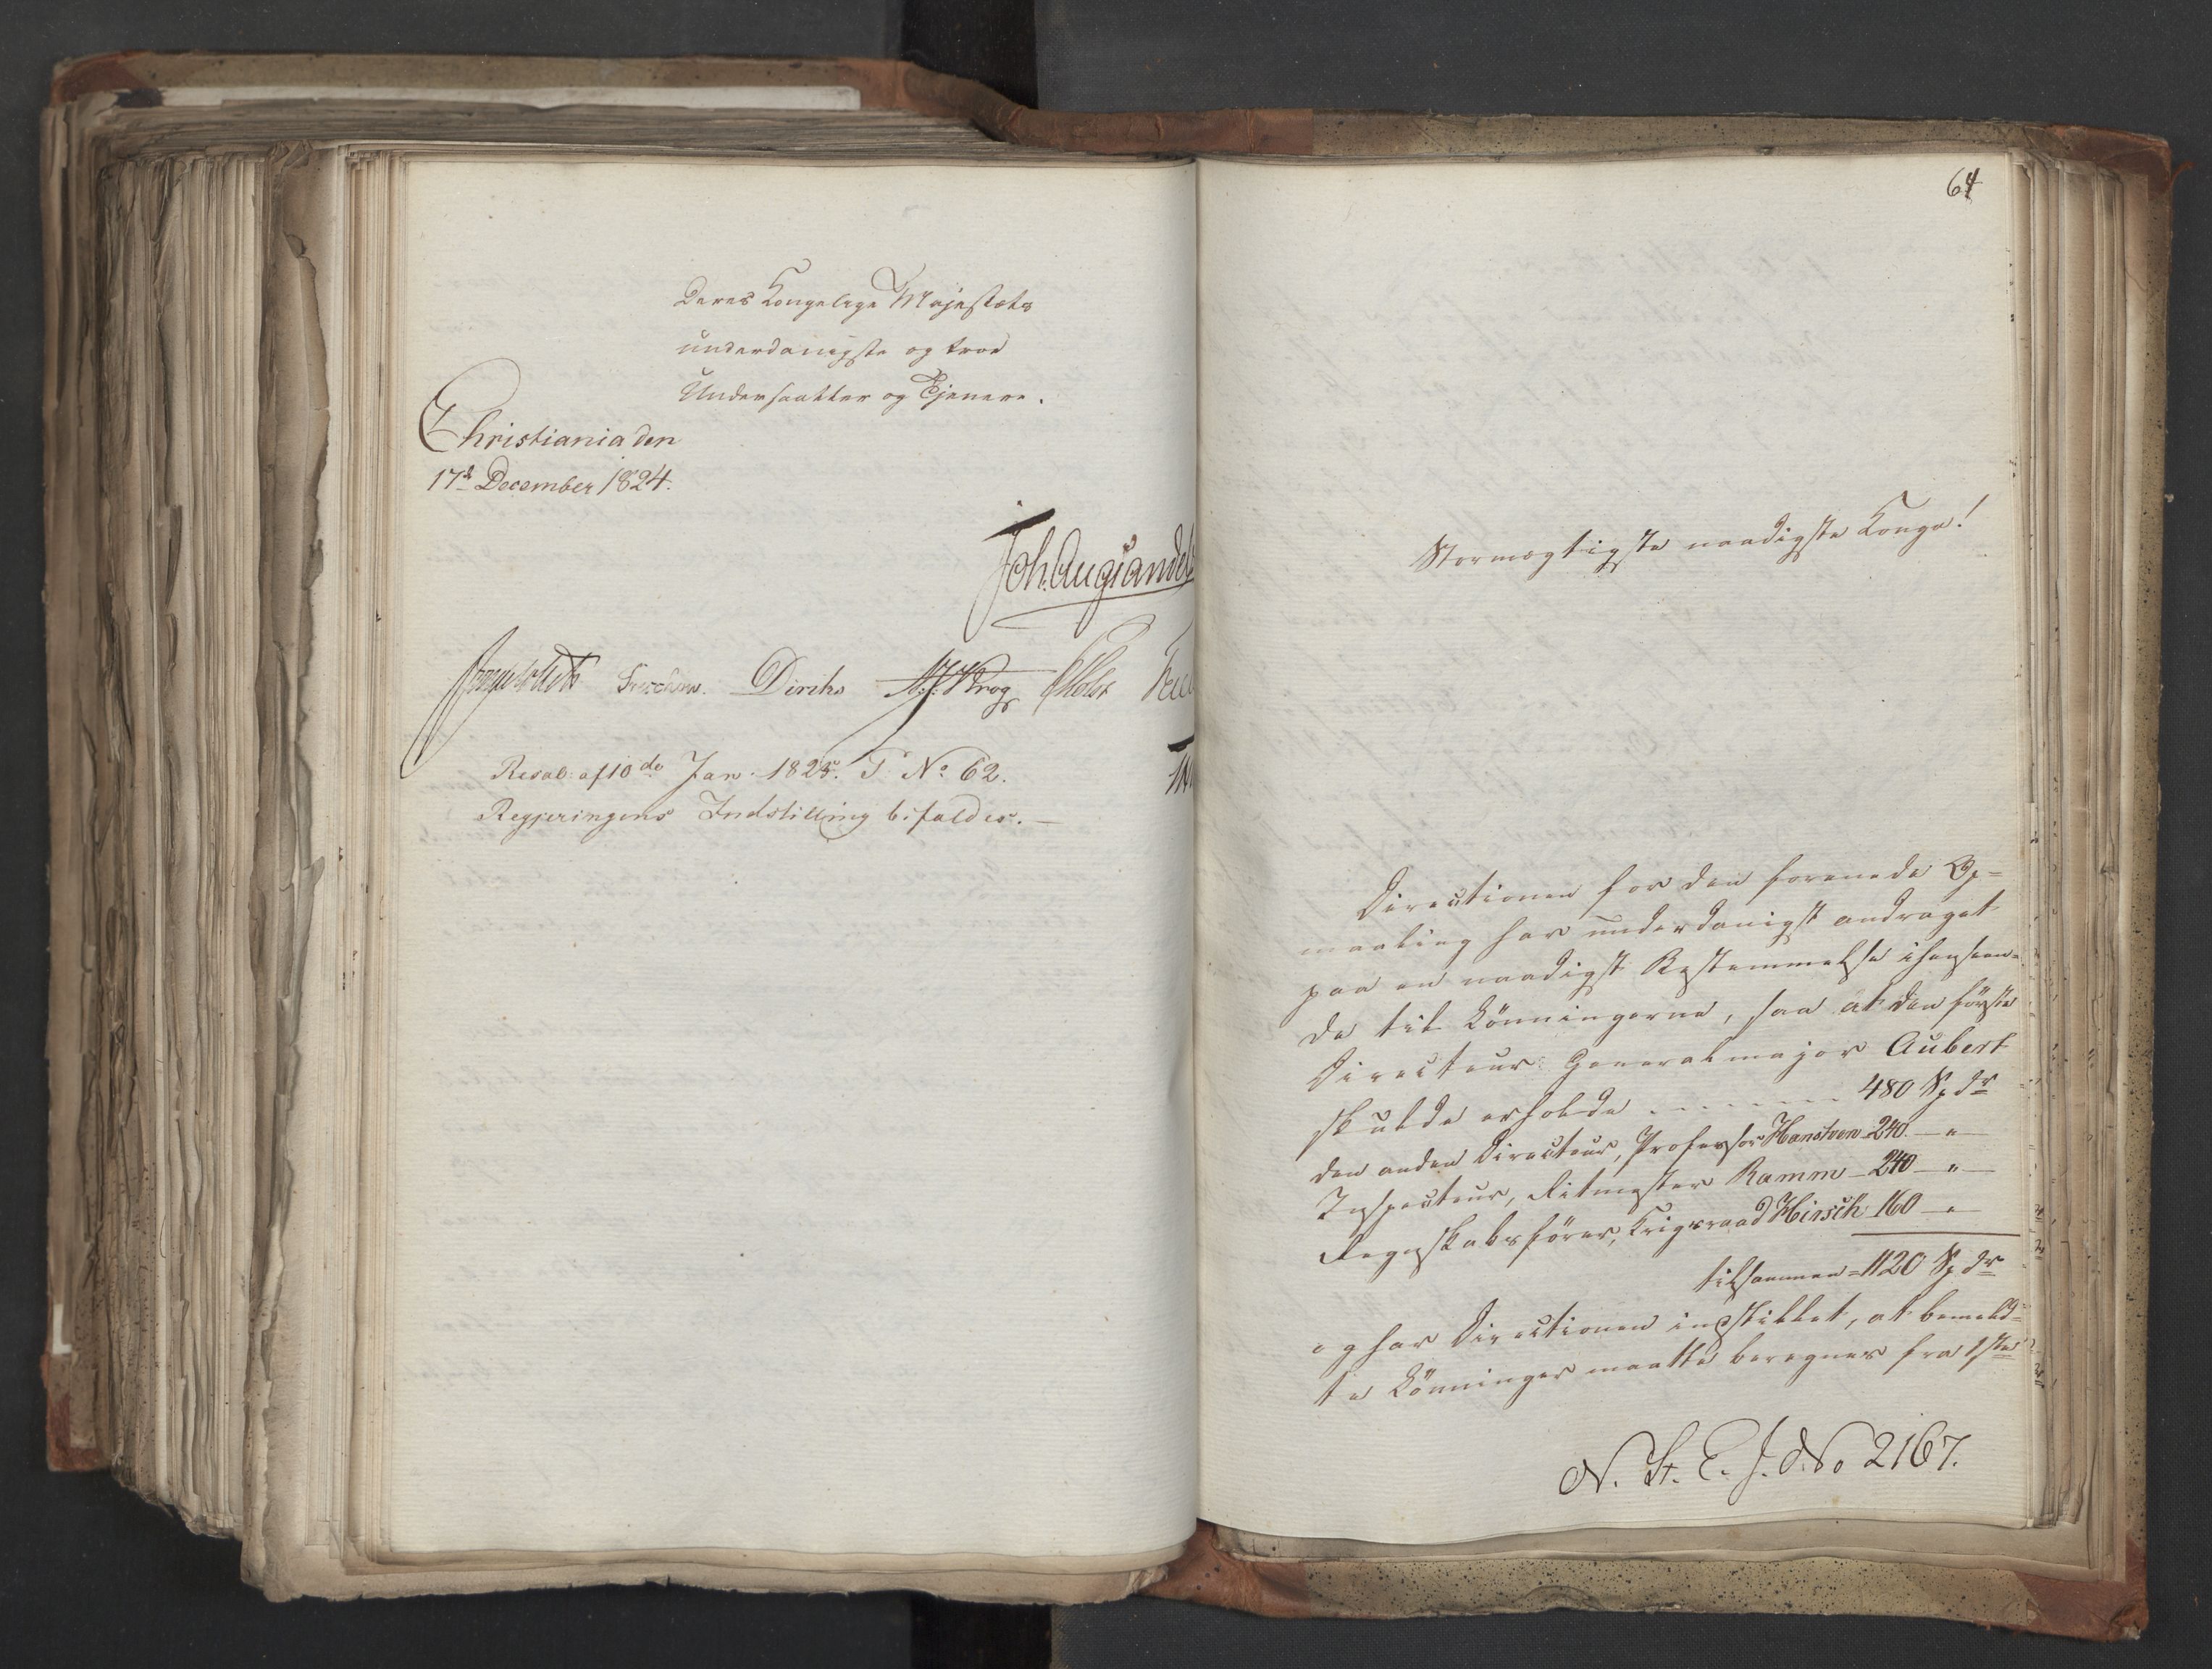 Deres Kongelige Majestæts
underdanigste og troe
Undersaatter og Tjenere.
Christiania den
17d December 1824.
Joh. Aug. Sandels
Jonas Collett Diriks M. J. Krog P Holst
Resol: af 10de Jan. 1825. P No 62.
Regjeringens Indstilling bifaldes. —
64
Stormægtigste naadigste Konge!
Directionen for den forenede Op-
maaling har underdanigst andraget
paa en naadigst Bestemmelse ihenseen-
de til Lönningerne, saa at den förste
Directeur: Generalmajor Aubert
skulde erholde - - - - - - - 480 Spdr
den anden Directeur, Professor Hansteen 240. — " —
Inspecteur, Ritmester Ramm — 240 — " —
Regnskabsförer, Krigsraad Hirsch 160 — " —
tilsammen = 1120 Spdr
og har Directionen indstillet, at bemeld-
te Lönninger maatte beregnes fra 1ste
N. St. E. J. No 2167.